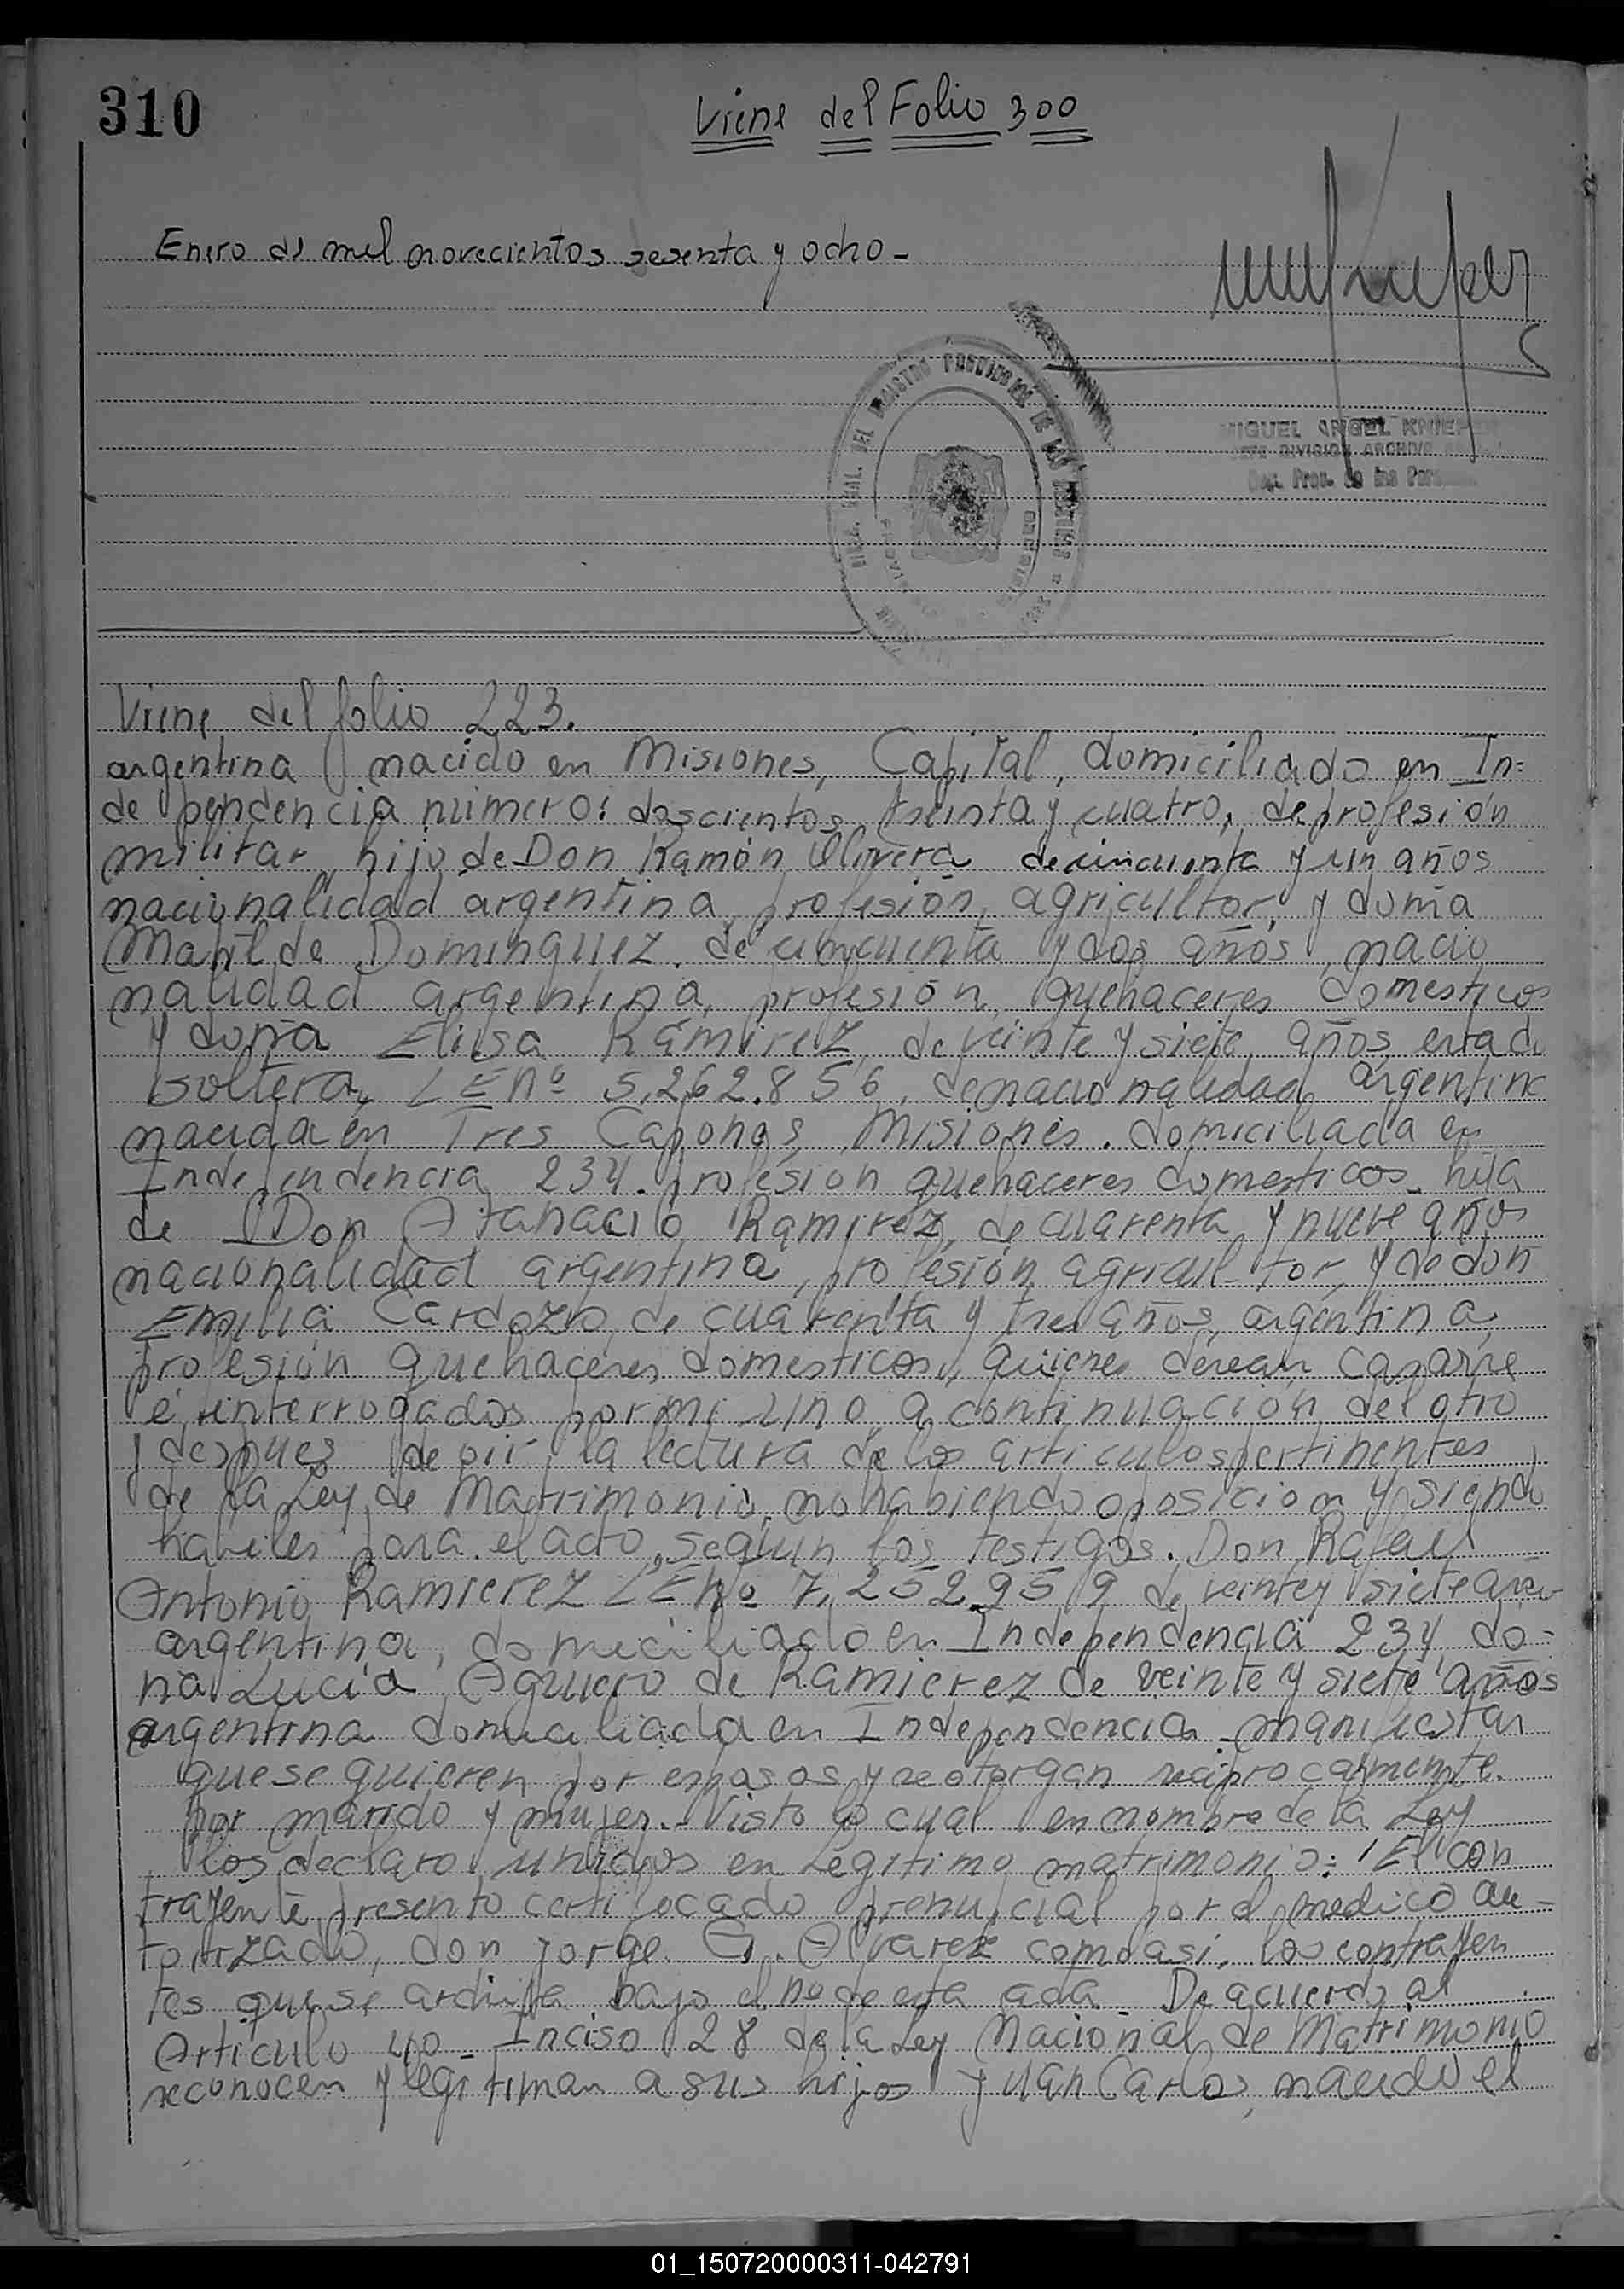 310
Viene del Folio 300
Enero de mil novecientos sesenta y ocho -
MIGUEL ANGEL KNIEP
JEFE DIVISION ARCHIVO
Prov. de las Per
Viene del folio 223.
argentina nacido en Misiones, Capital, domiciliado en In=
dependencia número: doscientos treinta y cuatro, de profesión
militar, hijo de Don Ramón Olivera de cincuenta y un años
nacionalidad argentina, profesión, agricultor, y doña
Matilde Dominguez. de cincuenta y dos años, nacio
nalidad argentina, profesión, quehaceres domesticos
y doña Elisa Ramirez, de veinte y siete, años, estado
soltera, LE nº 5.262.856. de nacionalidad argentina
nacida en Tres Capones, Misiones. domiciliada en
Independencia 234. profesión quehaceres domesticos. hija
de Don Atanacio Ramirez, de cuarenta y nueve años
nacionalidad argentina, profesión agricul-tor, y de doñ
Emilia Cardozo, de cuarenta y tres años, argentina,
profesión quehaceres domesticos, quienes desean casarse
é interrogados por mi uno a continuación del otro
y despues de oir la lectura de los articulos pertinentes
de la Ley de Matrimonio, no habiendo oposicion y siendo
habiles para el acto, según los testigos. Don Rafael
Antonio Ramierez LE nº 7.252.959 de veinte y siete años
argentina, domiciliado en Independencia 234, do-
ña Lucia Aguero de Ramierez de veinte y siete años
argentina domiciliada en Independencia manifiestan
que se quieren por esposos y se otorgan reciprocamente.
por marido y mujer. - Visto lo cual en nombre de la Ley
los declaro unidos en Legitimo matrimonio: El con
trayente presento certificado prenupcial por el medico au-
torizado, don Jorge A. Alvarez como asi, los contrayen
tes que se archiva bajo el nº de esta acta - De acuerdo al
Articulo 40 - Inciso 28 de la Ley Nacional de Matrimonio
reconocen y legitiman a sus hijos Juan Carlos, nacido el
01_150720000311-042791